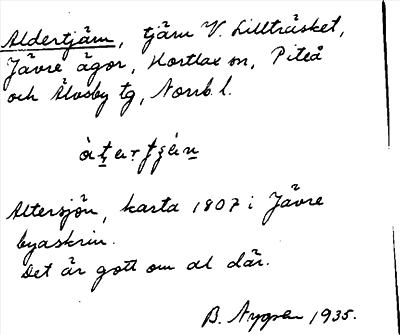 Aldertjärn, tjärn V. Lillträsket,
Jävre ägor, Hortlax sn, Piteå
och Älvsby tg, Norrb. l.
Altersjön, karta 1807 i Jävre
byaskrin.
Det är gott om al där.
B. Nygren 1935.